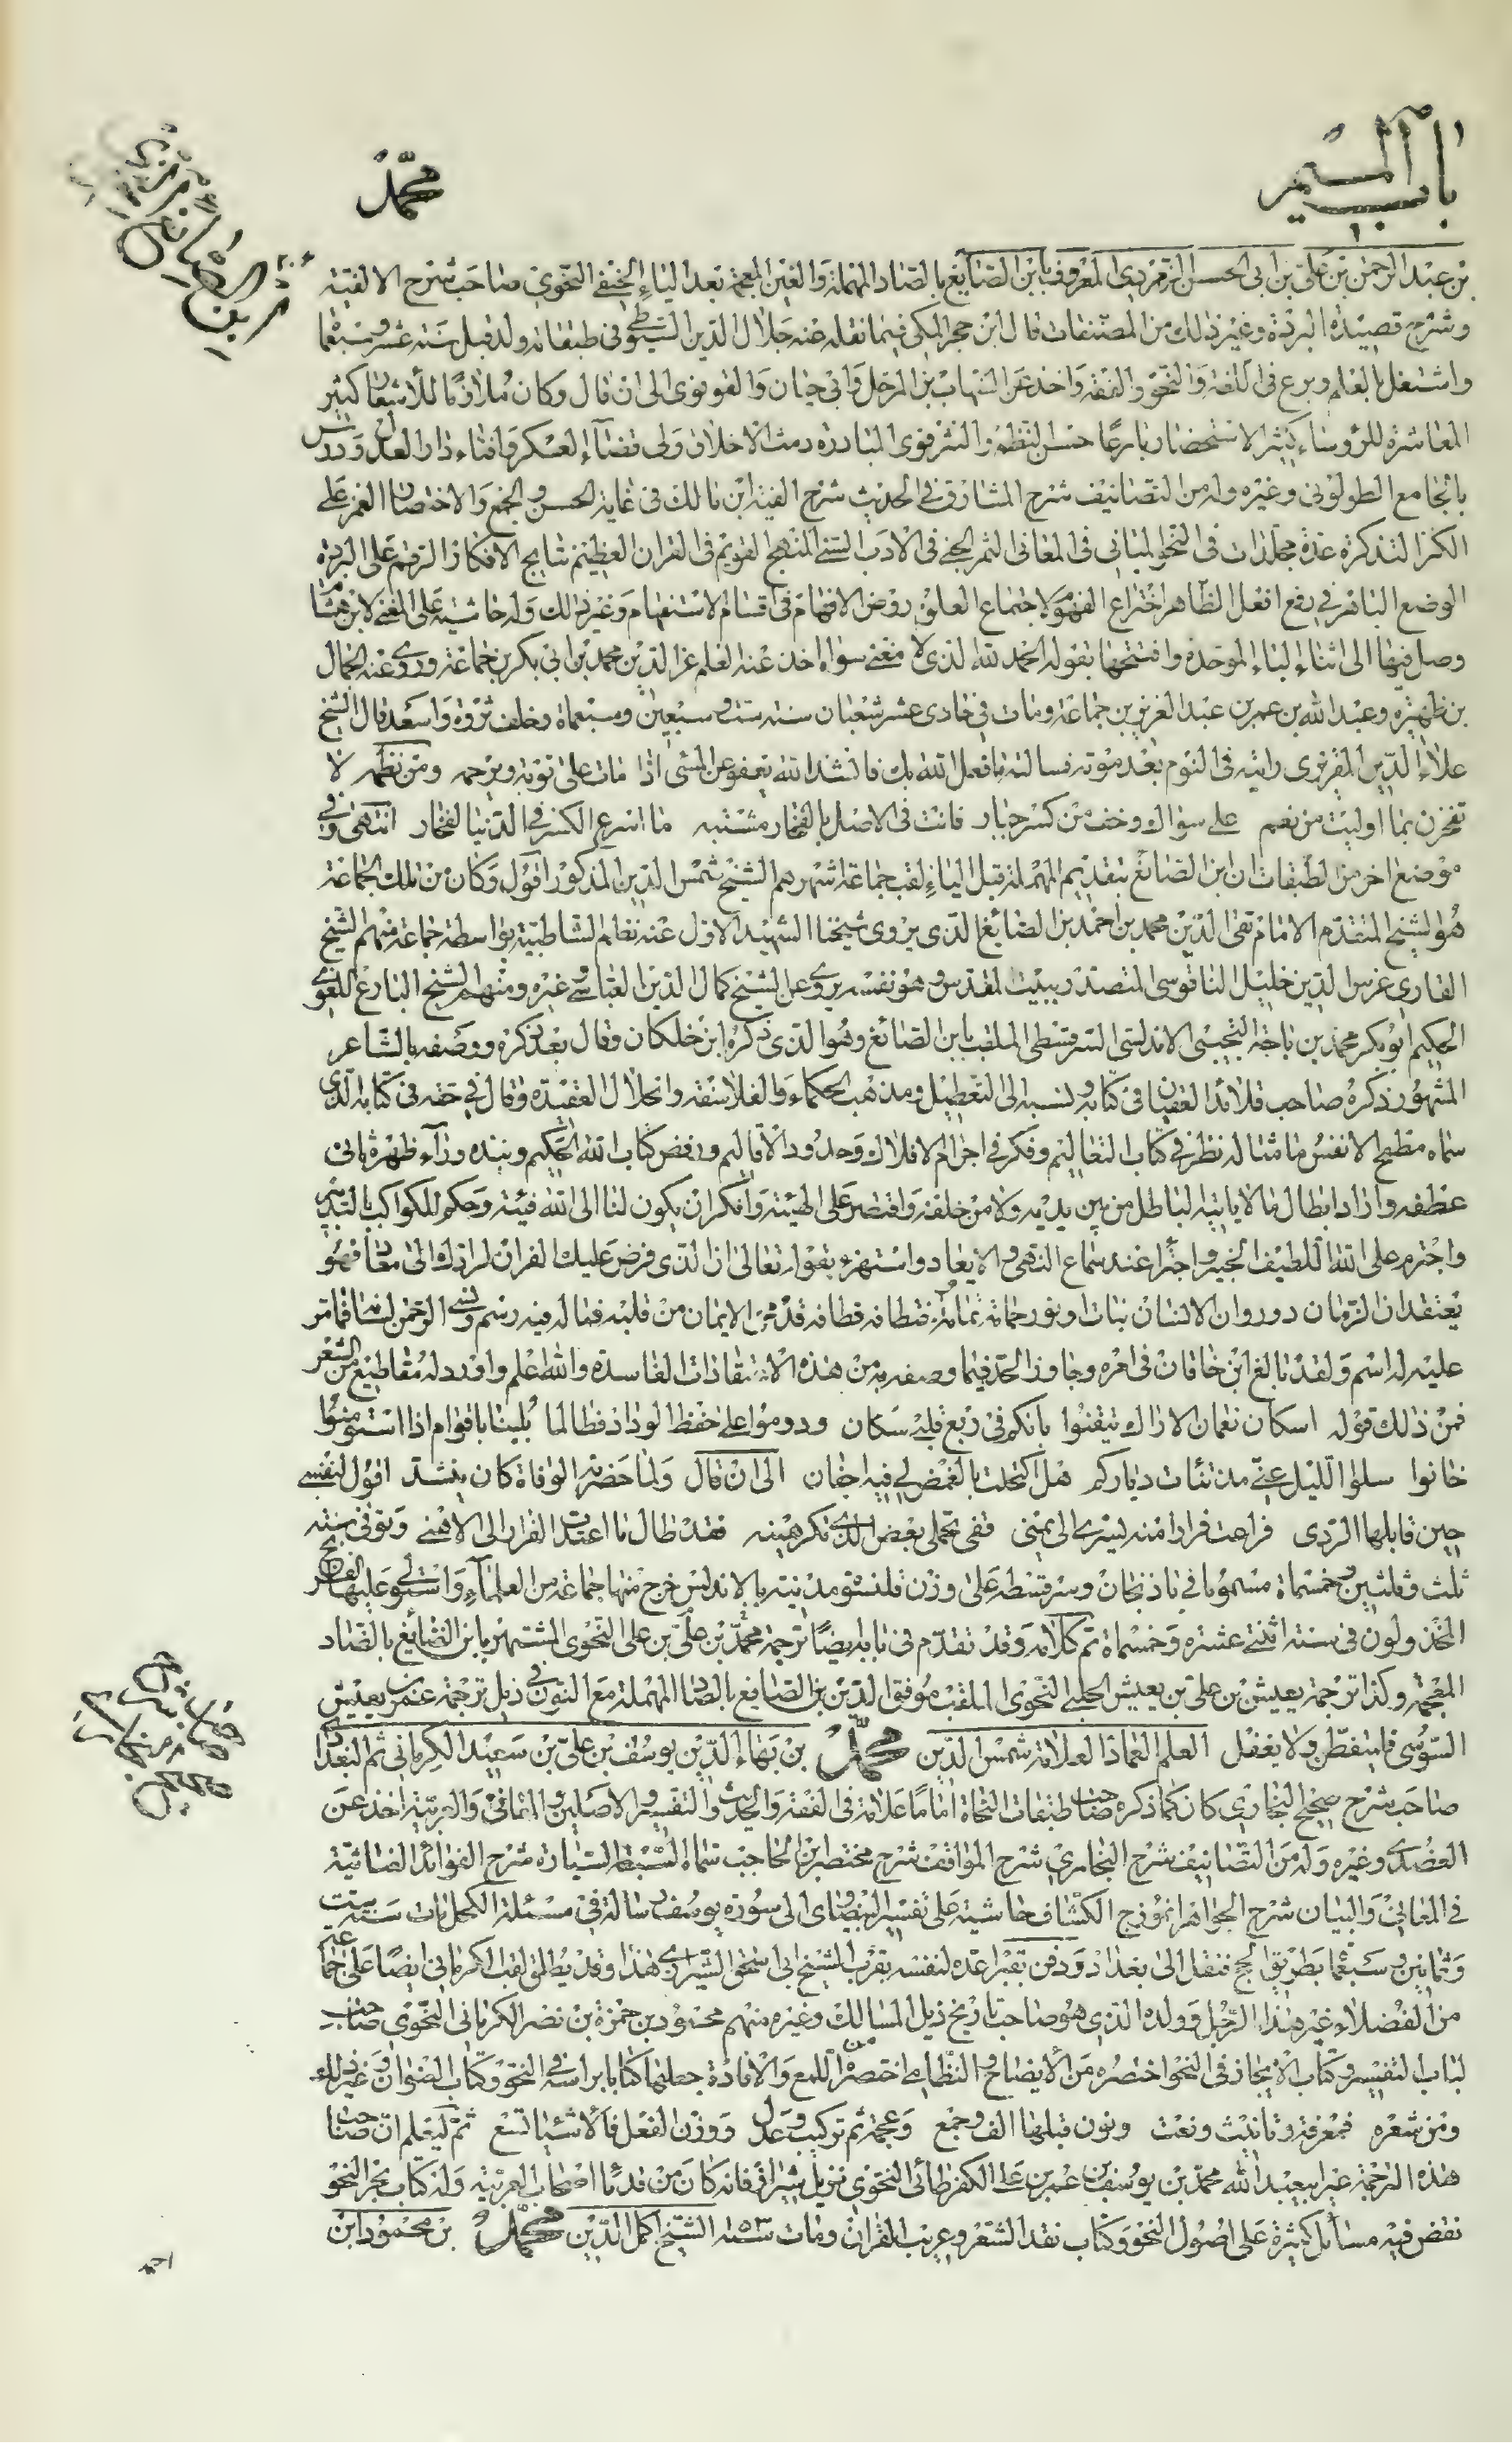 باب الميم
محمد
ابن الصائغ
بن عبد الرحمن بن علي بن ابي الحسن الزمردي المعروف بابن الصايغ بالصاد المهملة والغين المعجمة بعد الياء الحنفي النحوي صاحب شرح الالفية
وشرح قصيدة البردة وغير ذلك من المصنفات قال ابن حجر المكي فيما نقله عنه جلال الدين السيوطي في طبقاته ولد قبل سنة عشر وسبعما
واشتغل بالعلم وبرع في اللغة والنحو والفقه واخذ عن الشهاب بن المرحل وابي حيان والقونوي الى ان قال وكان ملازما للاشتغال كثير
المعاشرة للرؤساء كثير الاستحضار بارعا حسن النظم والنثر قوي البادرة دمث الاخلاق ولي قضاء العسكر وافتاء دار العدل ودرس
بالجامع الطولوني وغيره وله من التصانيف شرح المشارق في الحديث شرح الفية ابن مالك في غاية الحسن والجمع والاختصار الغمز على
الكنز التذكرة عدة مجلدات في النحو المباني في المعاني الثمر الجني في الادب السني المنهج القويم في القران العظيم نتايج الافكار الرقم على البردة
الوضع الباهر في رفع افعل الظاهر اختراع الفهوم لاجتماع العلوم روض الافهام في اقسام الاستفهام وغير ذلك وله حاشية على المغني لابن هشام
وصل فيها الى اثناء الباء الموحدة وافتتحها بقوله الحمد لله الذي لا مغني سواه اخذ عنه العلم عز الدين محمد بن ابي بكر بن جماعة وروى عنه الجمال
بن ظهيرة وعبد الله بن عمر بن عبد العزيز بن جماعة ومات في حادي عشر شعبان سنة ست وسبعين وسبعماة وخلف ثروة واسعة قال الشيخ
علاء الدين المقريزي رايته في النوم بعد موته فسالته ما فعل الله بك فانشد الله يعفو عن المسئ اذا مات على توبة ويرحمه ومن نظمه لا
تفخرن بما اوليت من نعم على سواك وخف من كسر جبار فانت في الاصل بالفخار مشتبه ما اسرع الكسر في الدنيا لفخار انتهى وفي
موضع اخر من الطبقات ان ابن الصائغ بتقديم المهملة قبل الياء لقب جماعة اشهرهم الشيخ شمس الدين المذكور اقول وكان من تلك الجماعة
هو الشيخ المتقدم الامام تقي الدين محمد بن احمد بن الصائغ الذي يروي شيخنا الشهيد الاول عنه نظام الشاطبية بواسطة جماعة منهم الشيخ
القاري غرس الدين خليل الناقوسي المتصدر ببيت المقدس وهو نفسه يروي عن الشيخ كمال الدين العباسي وغيره ومنهم الشيخ البارع اللغوي
الحكيم ابو بكر محمد بن باجة التجيبي الاندلسي السرقسطي الملقب بابن الصائغ وهو الذي ذكره ابن خلكان وقال بعد ذكره ووصفه بالشاعر
المشهور ذكره صاحب قلائد العقيان في كتابه ونسبه الى التعطيل ومذهب الحكماء والفلاسفة وانحلال العقيدة وقال في حقه في كتابه الذي
سماه مطمح الانفس ما مثاله نظر في كتاب التعاليم وفكر في اجرام الافلاك وحدود الاقاليم ورفض كتاب الله الحكيم ونبذه وراء ظهره ثاني
عطفه واراد ابطال ما لا ياتيه الباطل من بين يديه ولا من خلفه واقتصر على الهيئة وانكر ان يكون لنا الى الله فيئة وحكم للكواكب بالتدبير
واجترم على الله اللطيف الخبير واجترا عند سماع النهي والايعاد واستهزء بقوله تعالى ان الذي فرض عليك القران لرادك الى معاد فهو
يعتقد ان الزمان دور وان الانسان نبات او نور حمامه تمامه واختطافه قطافه قد محي الايمان من قلبه فماله فيه رسم ونسي الرحمن لسانه فما تمر
عليه له اسم ولقد بالغ ابن خاقان في امره وجاوز الحد فيما وصفه به من هذه الاعتقادات الفاسدة والله اعلم واورد له مقاطيع من الشعر
فمن ذلك قوله اسكان نعمان الاراك تيقنوا بانكم في ربع قلبي سكان ودوموا على حفظ الوداد فطالما بلينا باقوام اذا استؤمنوا
خانوا سلوا الليل عني مذ تناءت دياركم هل اكتحلت بالغمض لي فيه اجفان الى ان قال ولما حضرته الوفاة كان ينشد اقول لنفسي
حين قابلها الردى فراعت فرارا منه يسرى الى يمنى قفي تحملي بعض الذي تكرهينه فقد طال ما اعتدت الفرار الى الاهنى وتوفي سنة
ثلث وثلثين وخمسماة مسموما في باذنجان وسرقسطة على وزن قلنسوة مدينة بالاندلس خرج منها جماعة من العلماء واستولى عليها الفرنج
المخذولون في سنة اثنتي عشرة وخمسماة تم كلامه وقد تقدم في بابه ايضا ترجمة محمد بن علي بن علي النحوي المشتهر بابن الضايع بالضاد
المعجمة وكذا ترجمة يعيش بن علي بن يعيش الحلبي النحوي الملقب موفق الدين بن الصايغ بالصاد المهملة مع النون في ذيل ترجمة عمر بن يعيش
السوسي فليتفطن ولا يغفل العلم العماد العلامة شمس الدين محمد بن بهاء الدين يوسف بن علي بن سعيد الكرماني ثم البغدادي
صاحب شرح صحيح البخاري كان كما ذكره صاحب طبقات النحاة اماما علامة في الفقه والحديث والتفسير والاصلين والمعاني والعربية اخذ عن
العضدي وغيره وله من التصانيف شرح البخاري شرح المواقف شرح مختصر ابن الحاجب سماه السبعة السيارة شرح الفوائد الغياثية
في المعاني والبيان شرح الجواهر انموزج الكشاف حاشية على تفسير البيضاوي الى سورة يوسف رسالة في مسئلة الكحل مات سنة ست
وثمانين وسبعما بطريق الحج فنقل الى بغداد ودفن بقبر اعده لنفسه بقرب الشيخ ابي اسحق الشيرازي هذا وقد يطلق لقب الكرماني ايضا على جماعة
من الفضلاء غير هذا الرجل وولده الذي هو صاحب تاريخ ذيل المسالك وغيره منهم محمود بن حمزة بن نصر الكرماني النحوي صاحب
لباب التفسير وكتاب الايجاز في النحو اختصره من الايضاح والنظامي اختصره من اللمع والافادة جعلها كتابا براسه في النحو وكتاب العنوان وغير ذلك
ومن شعره فمعرفة وتانيث ونعت ونون قبلها الف وجمع وعجمة ثم تركيب وعدل ووزن الفعل فالاشياء تسع ثم ليعلم ان صاحب
هذه الترجمة غير ابيعبد الله محمد بن يوسف بن عمر بن علي الكفرطائي النحوي نزيل شيراز فانه كان من قدماء اصحاب العربية وله كتاب بحر النحو
نقض فيه مسائل كثيرة على اصول النحو وكتاب نقد الشعر وغريب القران ومات سنة ٤٥٣ الشيخ اكمل الدين محمد بن محمود ابن
احمد